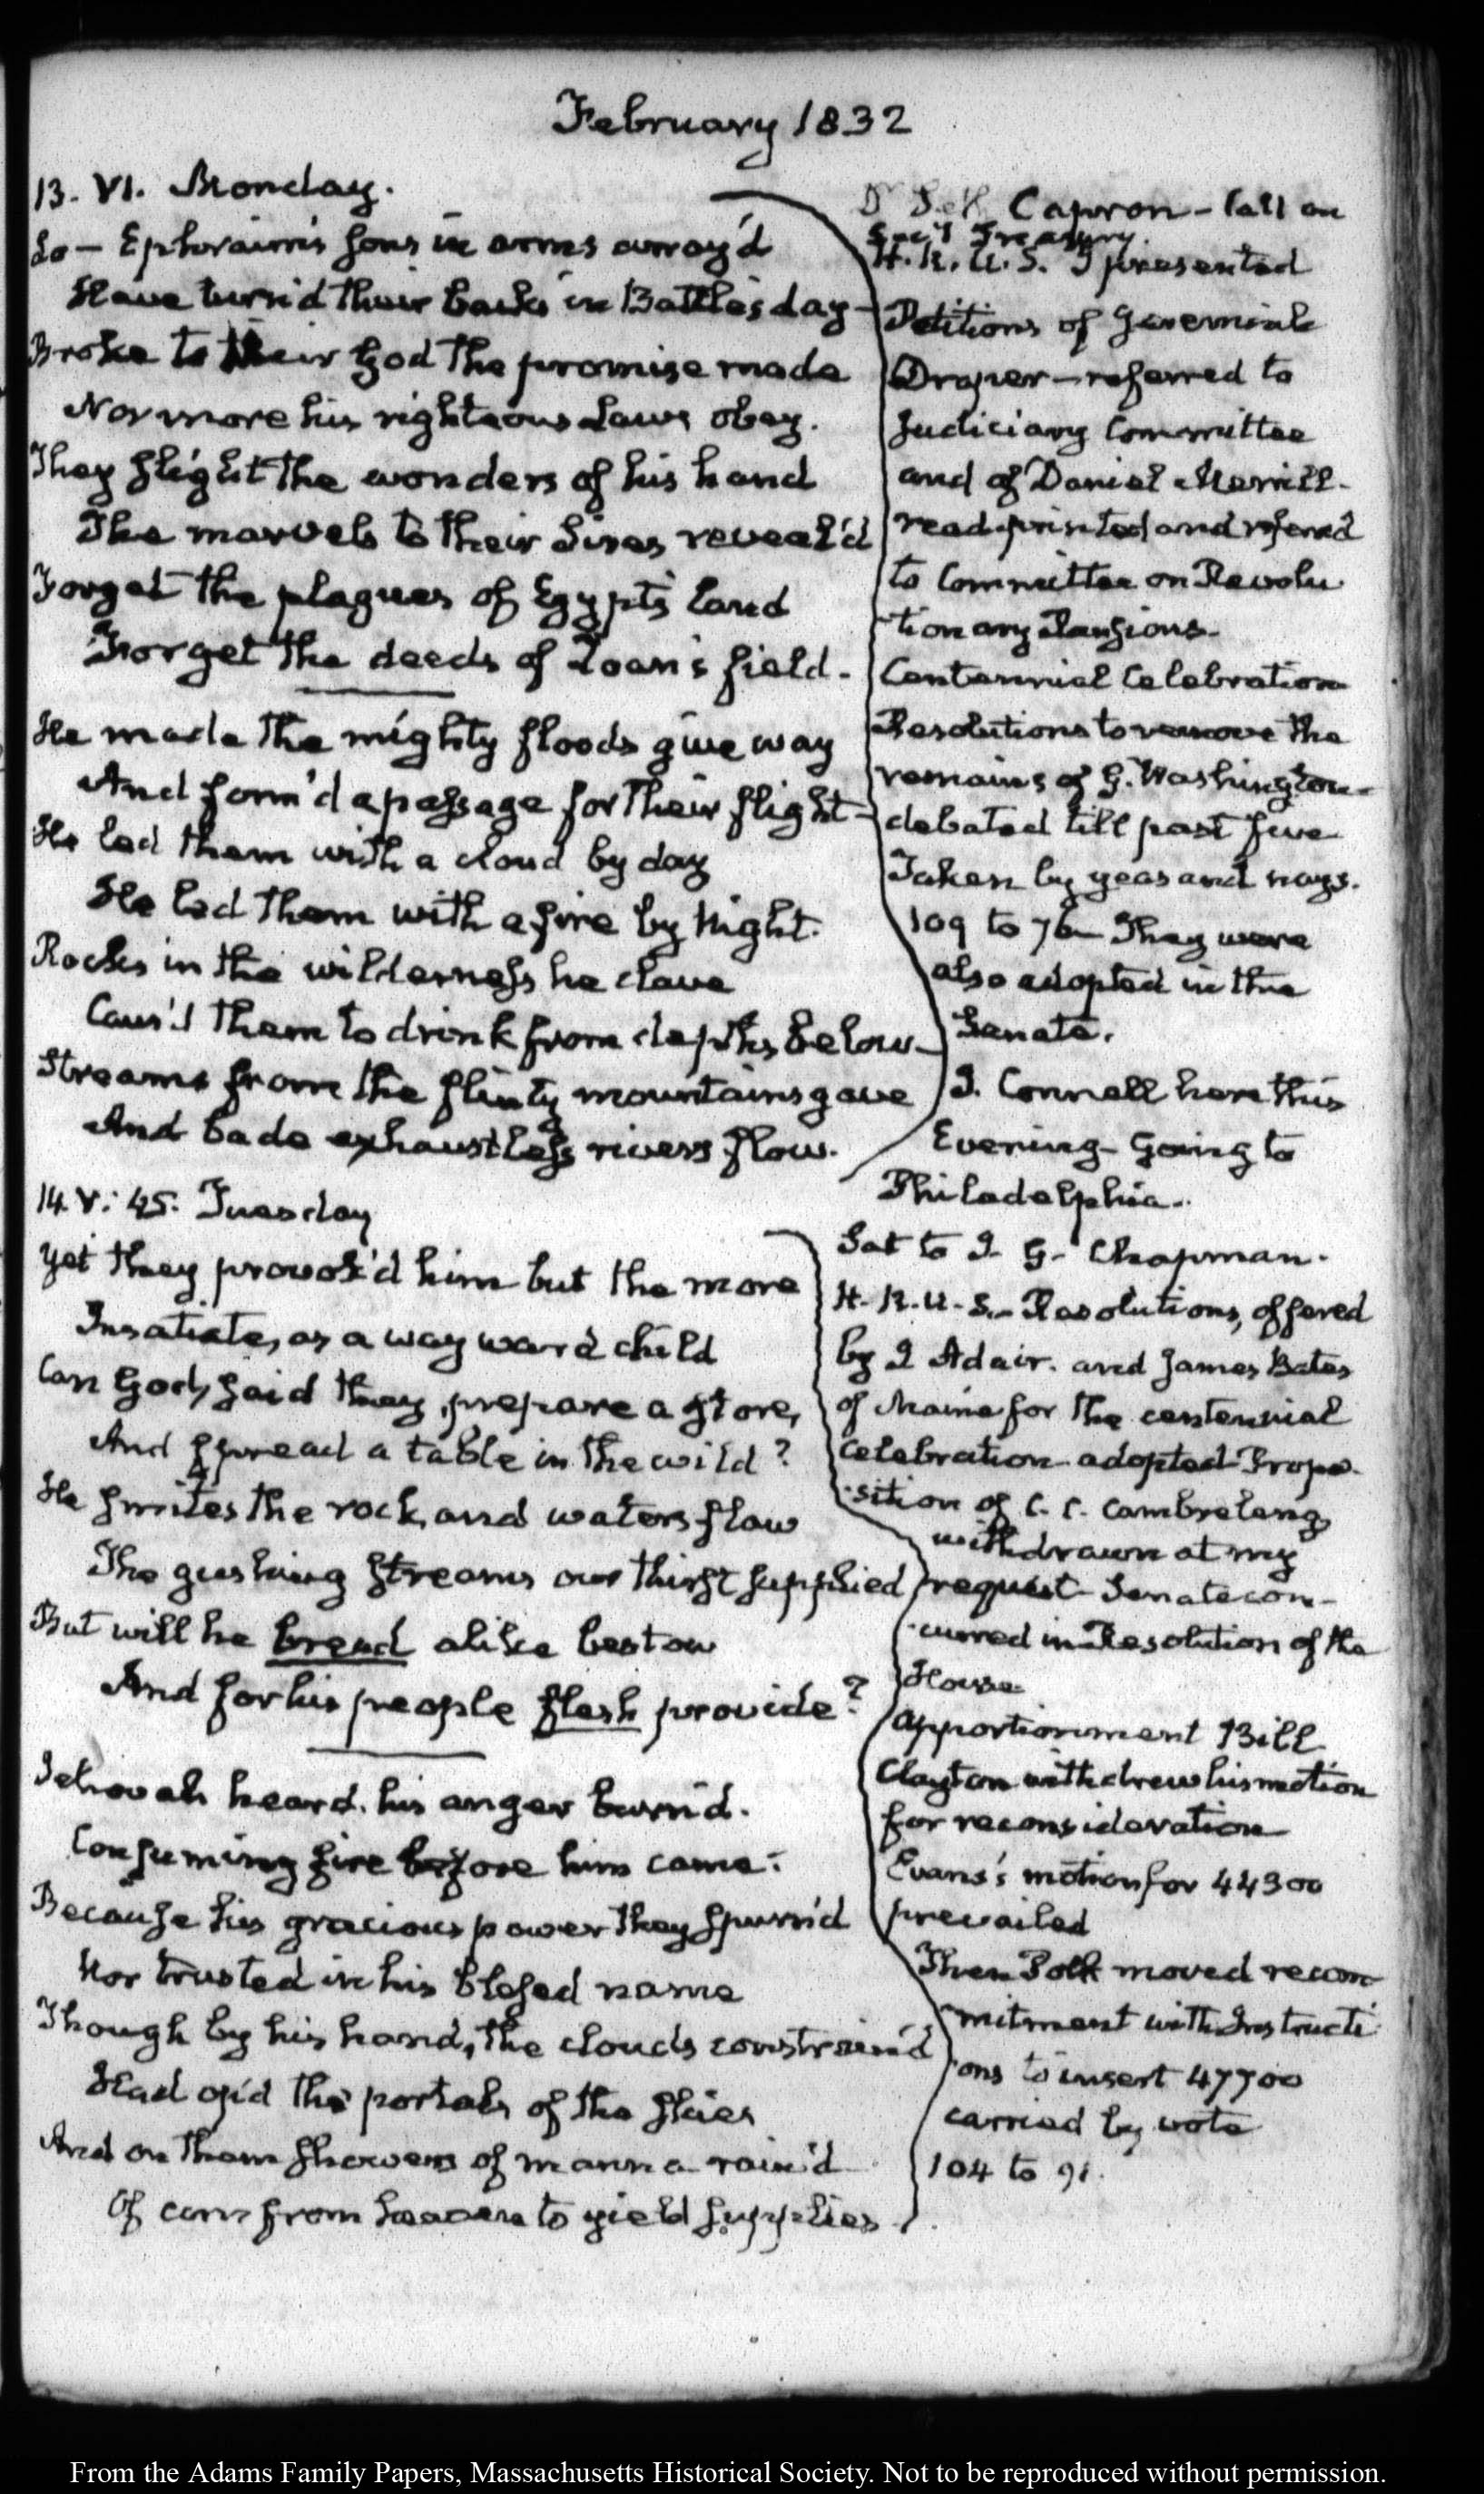 February 1832
13. VI. Monday.
Lo — Ephraim's sons in arms array'd
Have turn'd their backs in Battle's day —
Broke to their God the promise made
Nor more his righteous Laws obey.
They slight the wonders of his hand
The marvels to their Sires reveal'd
Forget the plagues of Egypt's land
Forget the deeds of Zoan's field.
He made the mighty floods give way
And form'd a passage for their flight —
He led them with a cloud by day
He led them with a fire by Night.
Rocks in the wilderness he clave
Caus'd them to drink from depths below —
Streams from the flinty mountains gave
And bade exhaustless rivers flow.
Capron - Call on
Sec'y Treasury.
H. R. U. S. I presented
Petitions of
Draper — referred to
Judiciary Committee
and of Daniel Merrill -
read printed and referred
to Committee on Revolu
tionary Pensions -
Centennial Celebration
Resolutions to remove the
remains of G. Washington -
debated till past five
Taken by yeas and nays.
109 to 76 — They were
also adopted in the
Senate.
J. Connell here this
Evening - Going to
Philadelphia.
14. V: 45. Tuesday
Yet they provok'd him but the more
Insatiate, as a wayward child
Can God, said they, prepare a store,
And spread a table in the wild?
He smites the rock, and waters flow
The gushing streams our thirst supplied
But will he bread alike bestow
And for his people flesh provide?
Jehovah heard. his anger burn'd.
Consuming fire before him came:
Because his gracious power they spurn'd
Nor trusted in his blessed name
Though by his hand, the clouds constrain'd
Had op'd the portals of the skies
And on them showers of manna rain'd
Of corn from heaven to yield supplies.
Sat to J. G. Chapman.
H. R. U. S. - Resolutions, offered
by J Adair. and James Bates
of Maine for the centennial
Celebration adopted - Propo-
sition of C. C. Cambreleng,
withdrawn at my
request - Senate con-
curred in Resolution of the
House
Apportionment Bill
Clayton withdrew his motion
for reconsideration
Evans's motion for 44300
prevailed
Then Polk moved recom
mitment with Instructi
ons to insert 47700
carried by vote
104 to 91.
From the Adams Family Papers, Massachusetts Historical Society. Not to be reproduced without permission.